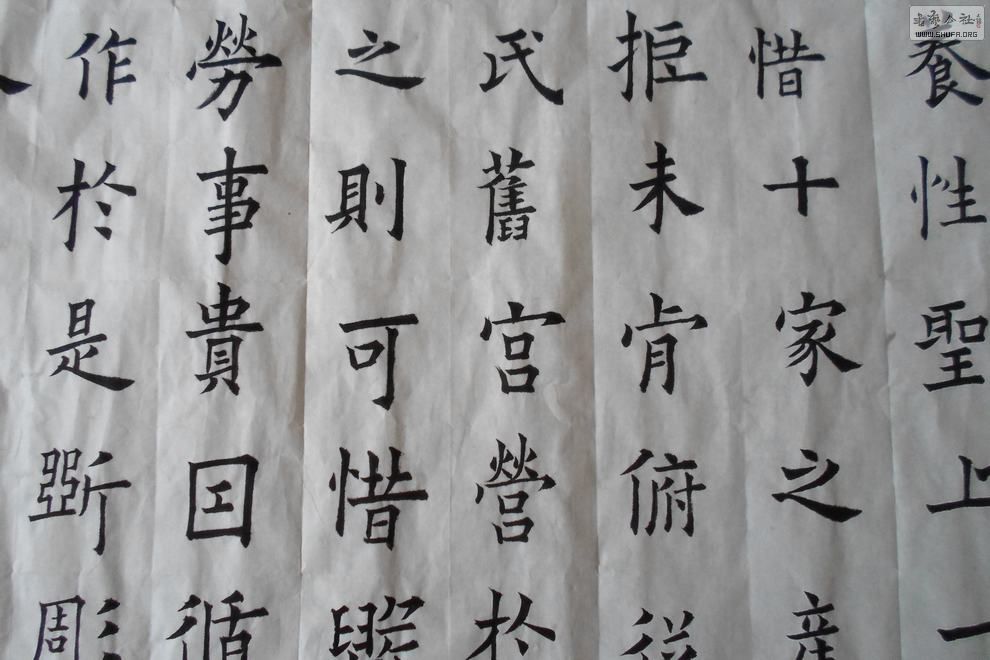 養性聖上一
惜十家之産
拒未肯俯從
氏舊宫營於
之則可惜毀
勞事貴囙循
作於是斲彫
書藝公社
WWW.SHUFA.ORG